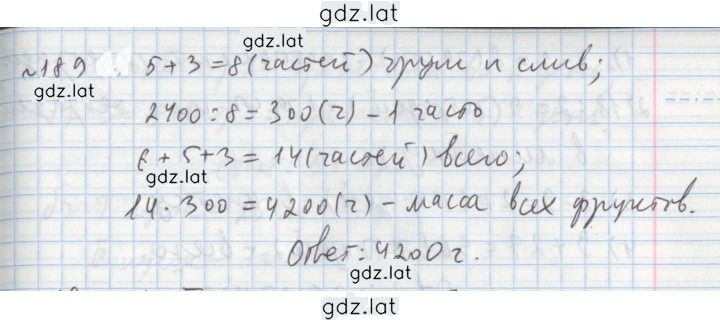 gdz.lat
gdz.lat
№189. 5+3=8(частей) груш и слив;
gdz.lat
2400:8=300(г)-1 часть
6+5+3=14(частей) всего;
gdz.lat
14·300=4200(г)-масса всех фруктов.
Ответ: 4200 г.
gdz.lat
gdz.lat